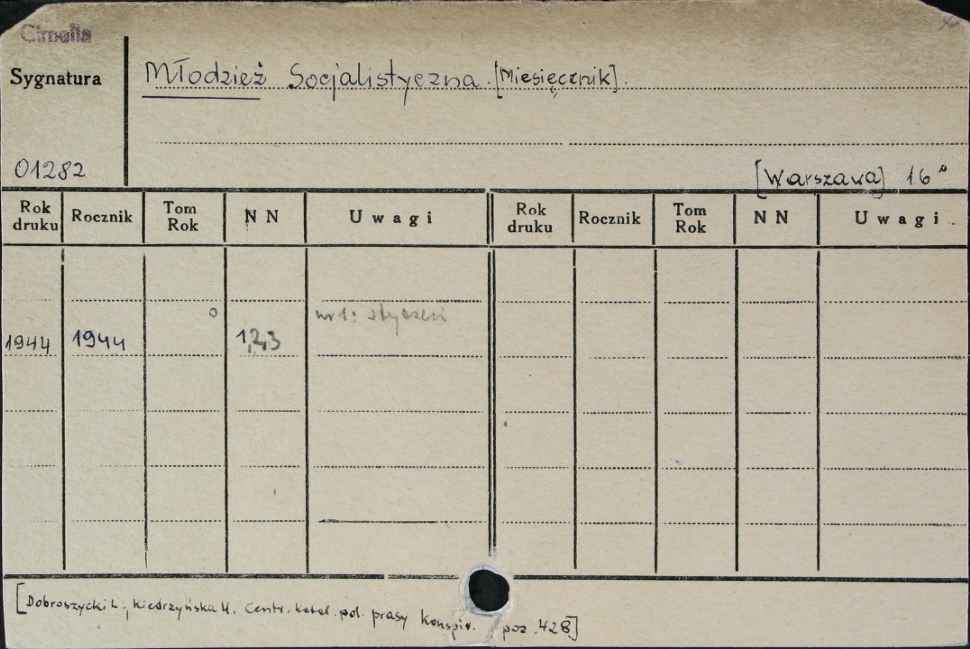 Cimelia
Sygnatura
Młodzież Socjalistyczna. [Miesięcznik].
01282
[Warszawa] 16°
Rok druku Rocznik Tom Rok NN Uwagi Rok druku Rocznik Tom Rok NN Uwagi
nr 1: styczeń
1944 1944 1,2,3
[Dobroszycki L., Kiedrzyńska W. Centr. katal. pol. prasy konspir. poz. 428]